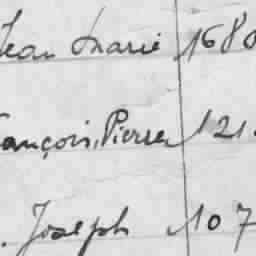 Jean Marie 1680
François, Pierre 121.
. Joseph 107